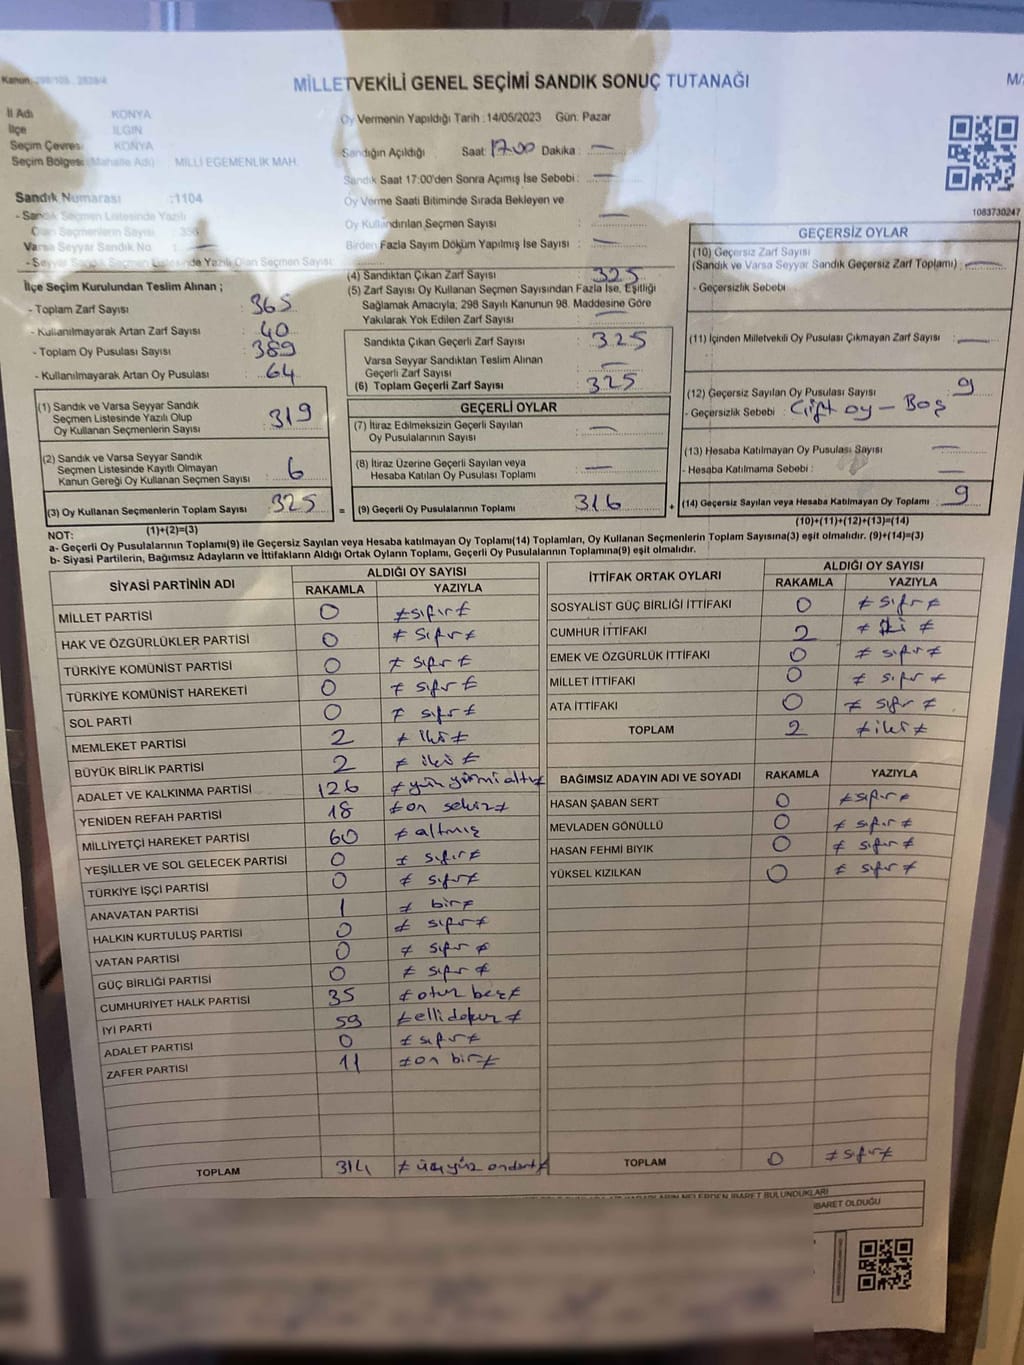 Kanun: 298/105, 2839/4
MİLLETVEKİLİ GENEL SEÇİMİ SANDIK SONUÇ TUTANAĞI
M/
İl Adı KONYA
İlçe ILGIN
Seçim Çevresi KONYA
Seçim Bölgesi (Mahalle Adı) MİLLİ EGEMENLİK MAH.
Sandık Numarası :1104
- Sandık Seçmen Listesinde Yazılı
Olan Seçmenlerin Sayısı : 356
Varsa Seyyar Sandık No : —
- Seyyar Sandık Seçmen Listesinde Yazılı Olan Seçmen Sayısı:
Oy Vermenin Yapıldığı Tarih :14/05/2023 Gün: Pazar
Sandığın Açıldığı Saat: 17.00 Dakika : —
Sandık Saat 17:00'den Sonra Açımış İse Sebebi : —
Oy Verme Saati Bitiminde Sırada Bekleyen ve
Oy Kullandırılan Seçmen Sayısı : —
Birden Fazla Sayım Döküm Yapılmış İse Sayısı : —
1083730247
İlçe Seçim Kurulundan Teslim Alınan ;
- Toplam Zarf Sayısı : 365
- Kullanılmayarak Artan Zarf Sayısı : 40
- Toplam Oy Pusulası Sayısı : 389
- Kullanılmayarak Artan Oy Pusulası : 64
(1) Sandık ve Varsa Seyyar Sandık
Seçmen Listesinde Yazılı Olup
Oy Kullanan Seçmenlerin Sayısı : 319
(2) Sandık ve Varsa Seyyar Sandık
Seçmen Listesinde Kayıtlı Olmayan
Kanun Gereği Oy Kullanan Seçmen Sayısı : 6
(3) Oy Kullanan Seçmenlerin Toplam Sayısı : 325
(1)+(2)=(3)
(4) Sandıktan Çıkan Zarf Sayısı : 325
(5) Zarf Sayısı Oy Kullanan Seçmen Sayısından Fazla İse, Eşitliği
Sağlamak Amacıyla; 298 Sayılı Kanunun 98. Maddesine Göre
Yakılarak Yok Edilen Zarf Sayısı : —
Sandıkta Çıkan Geçerli Zarf Sayısı : 325
Varsa Seyyar Sandıktan Teslim Alınan
Geçerli Zarf Sayısı : —
(6) Toplam Geçerli Zarf Sayısı : 325
GEÇERLİ OYLAR
(7) İtiraz Edilmeksizin Geçerli Sayılan
Oy Pusulalarının Sayısı : —
(8) İtiraz Üzerine Geçerli Sayılan veya
Hesaba Katılan Oy Pusulası Toplamı : —
= (9) Geçerli Oy Pusulalarının Toplamı : 316
GEÇERSİZ OYLAR
(10) Geçersiz Zarf Sayısı
(Sandık ve Varsa Seyyar Sandık Geçersiz Zarf Toplamı) : —
- Geçersizlik Sebebi
(11) İçinden Milletvekili Oy Pusulası Çıkmayan Zarf Sayısı : —
(12) Geçersiz Sayılan Oy Pusulası Sayısı : 9
- Geçersizlik Sebebi : Çift oy - Boş
(13) Hesaba Katılmayan Oy Pusulası Sayısı : —
- Hesaba Katılmama Sebebi : —
+ (14) Geçersiz Sayılan veya Hesaba Katılmayan Oy Toplamı : 9
(10)+(11)+(12)+(13)=(14)
NOT:
a- Geçerli Oy Pusulalarının Toplamı(9) ile Geçersiz Sayılan veya Hesaba katılmayan Oy Toplamı(14) Toplamları, Oy Kullanan Seçmenlerin Toplam Sayısına(3) eşit olmalıdır. (9)+(14)=(3)
b- Siyasi Partilerin, Bağımsız Adayların ve İttifakların Aldığı Ortak Oyların Toplamı, Geçerli Oy Pusulalarının Toplamına(9) eşit olmalıdır.
SİYASİ PARTİNİN ADI ALDIĞI OY SAYISI
RAKAMLA YAZIYLA
MİLLET PARTİSİ 0 ≠sıfır≠
HAK VE ÖZGÜRLÜKLER PARTİSİ 0 ≠ sıfır≠
TÜRKİYE KOMÜNİST PARTİSİ 0 ≠ sıfır ≠
TÜRKİYE KOMÜNİST HAREKETİ 0 ≠ sıfır ≠
SOL PARTİ 0 ≠ sıfır ≠
MEMLEKET PARTİSİ 2 ≠ iki ≠
BÜYÜK BİRLİK PARTİSİ 2 ≠ iki ≠
ADALET VE KALKINMA PARTİSİ 126 ≠ yüz yirmi altı≠
YENİDEN REFAH PARTİSİ 18 ≠ on sekiz≠
MİLLİYETÇİ HAREKET PARTİSİ 60 ≠ altmış
YEŞİLLER VE SOL GELECEK PARTİSİ 0 ≠ sıfır≠
TÜRKİYE İŞÇİ PARTİSİ 0 ≠ sıfır≠
ANAVATAN PARTİSİ 1 ≠ bir≠
HALKIN KURTULUŞ PARTİSİ 0 ≠ sıfır ≠
VATAN PARTİSİ 0 ≠ sıfır ≠
GÜÇ BİRLİĞİ PARTİSİ 0 ≠ sıfır ≠
CUMHURİYET HALK PARTİSİ 35 ≠ otuz beş≠
İYİ PARTİ 59 ≠ elli dokuz ≠
ADALET PARTİSİ 0 ≠ sıfır ≠
ZAFER PARTİSİ 11 ≠on bir≠
TOPLAM 314 ≠ üçyüz ondört≠
İTTİFAK ORTAK OYLARI ALDIĞI OY SAYISI
RAKAMLA YAZIYLA
SOSYALİST GÜÇ BİRLİĞİ İTTİFAKI 0 ≠ sıfır ≠
CUMHUR İTTİFAKI 2 ≠ iki ≠
EMEK VE ÖZGÜRLÜK İTTİFAKI 0 ≠ sıfır ≠
MİLLET İTTİFAKI 0 ≠ sıfır ≠
ATA İTTİFAKI 0 ≠ sıfır ≠
TOPLAM 2 ≠iki≠
BAĞIMSIZ ADAYIN ADI VE SOYADI RAKAMLA YAZIYLA
HASAN ŞABAN SERT 0 ≠sıfır≠
MEVLADEN GÖNÜLLÜ 0 ≠ sıfır ≠
HASAN FEHMI BIYIK 0 ≠ sıfır ≠
YÜKSEL KIZILKAN 0 ≠ sıfır ≠
TOPLAM 0 ≠sıfır≠
NELERDEN İBARET BULUNDUKLARI
İBARET OLDUĞU